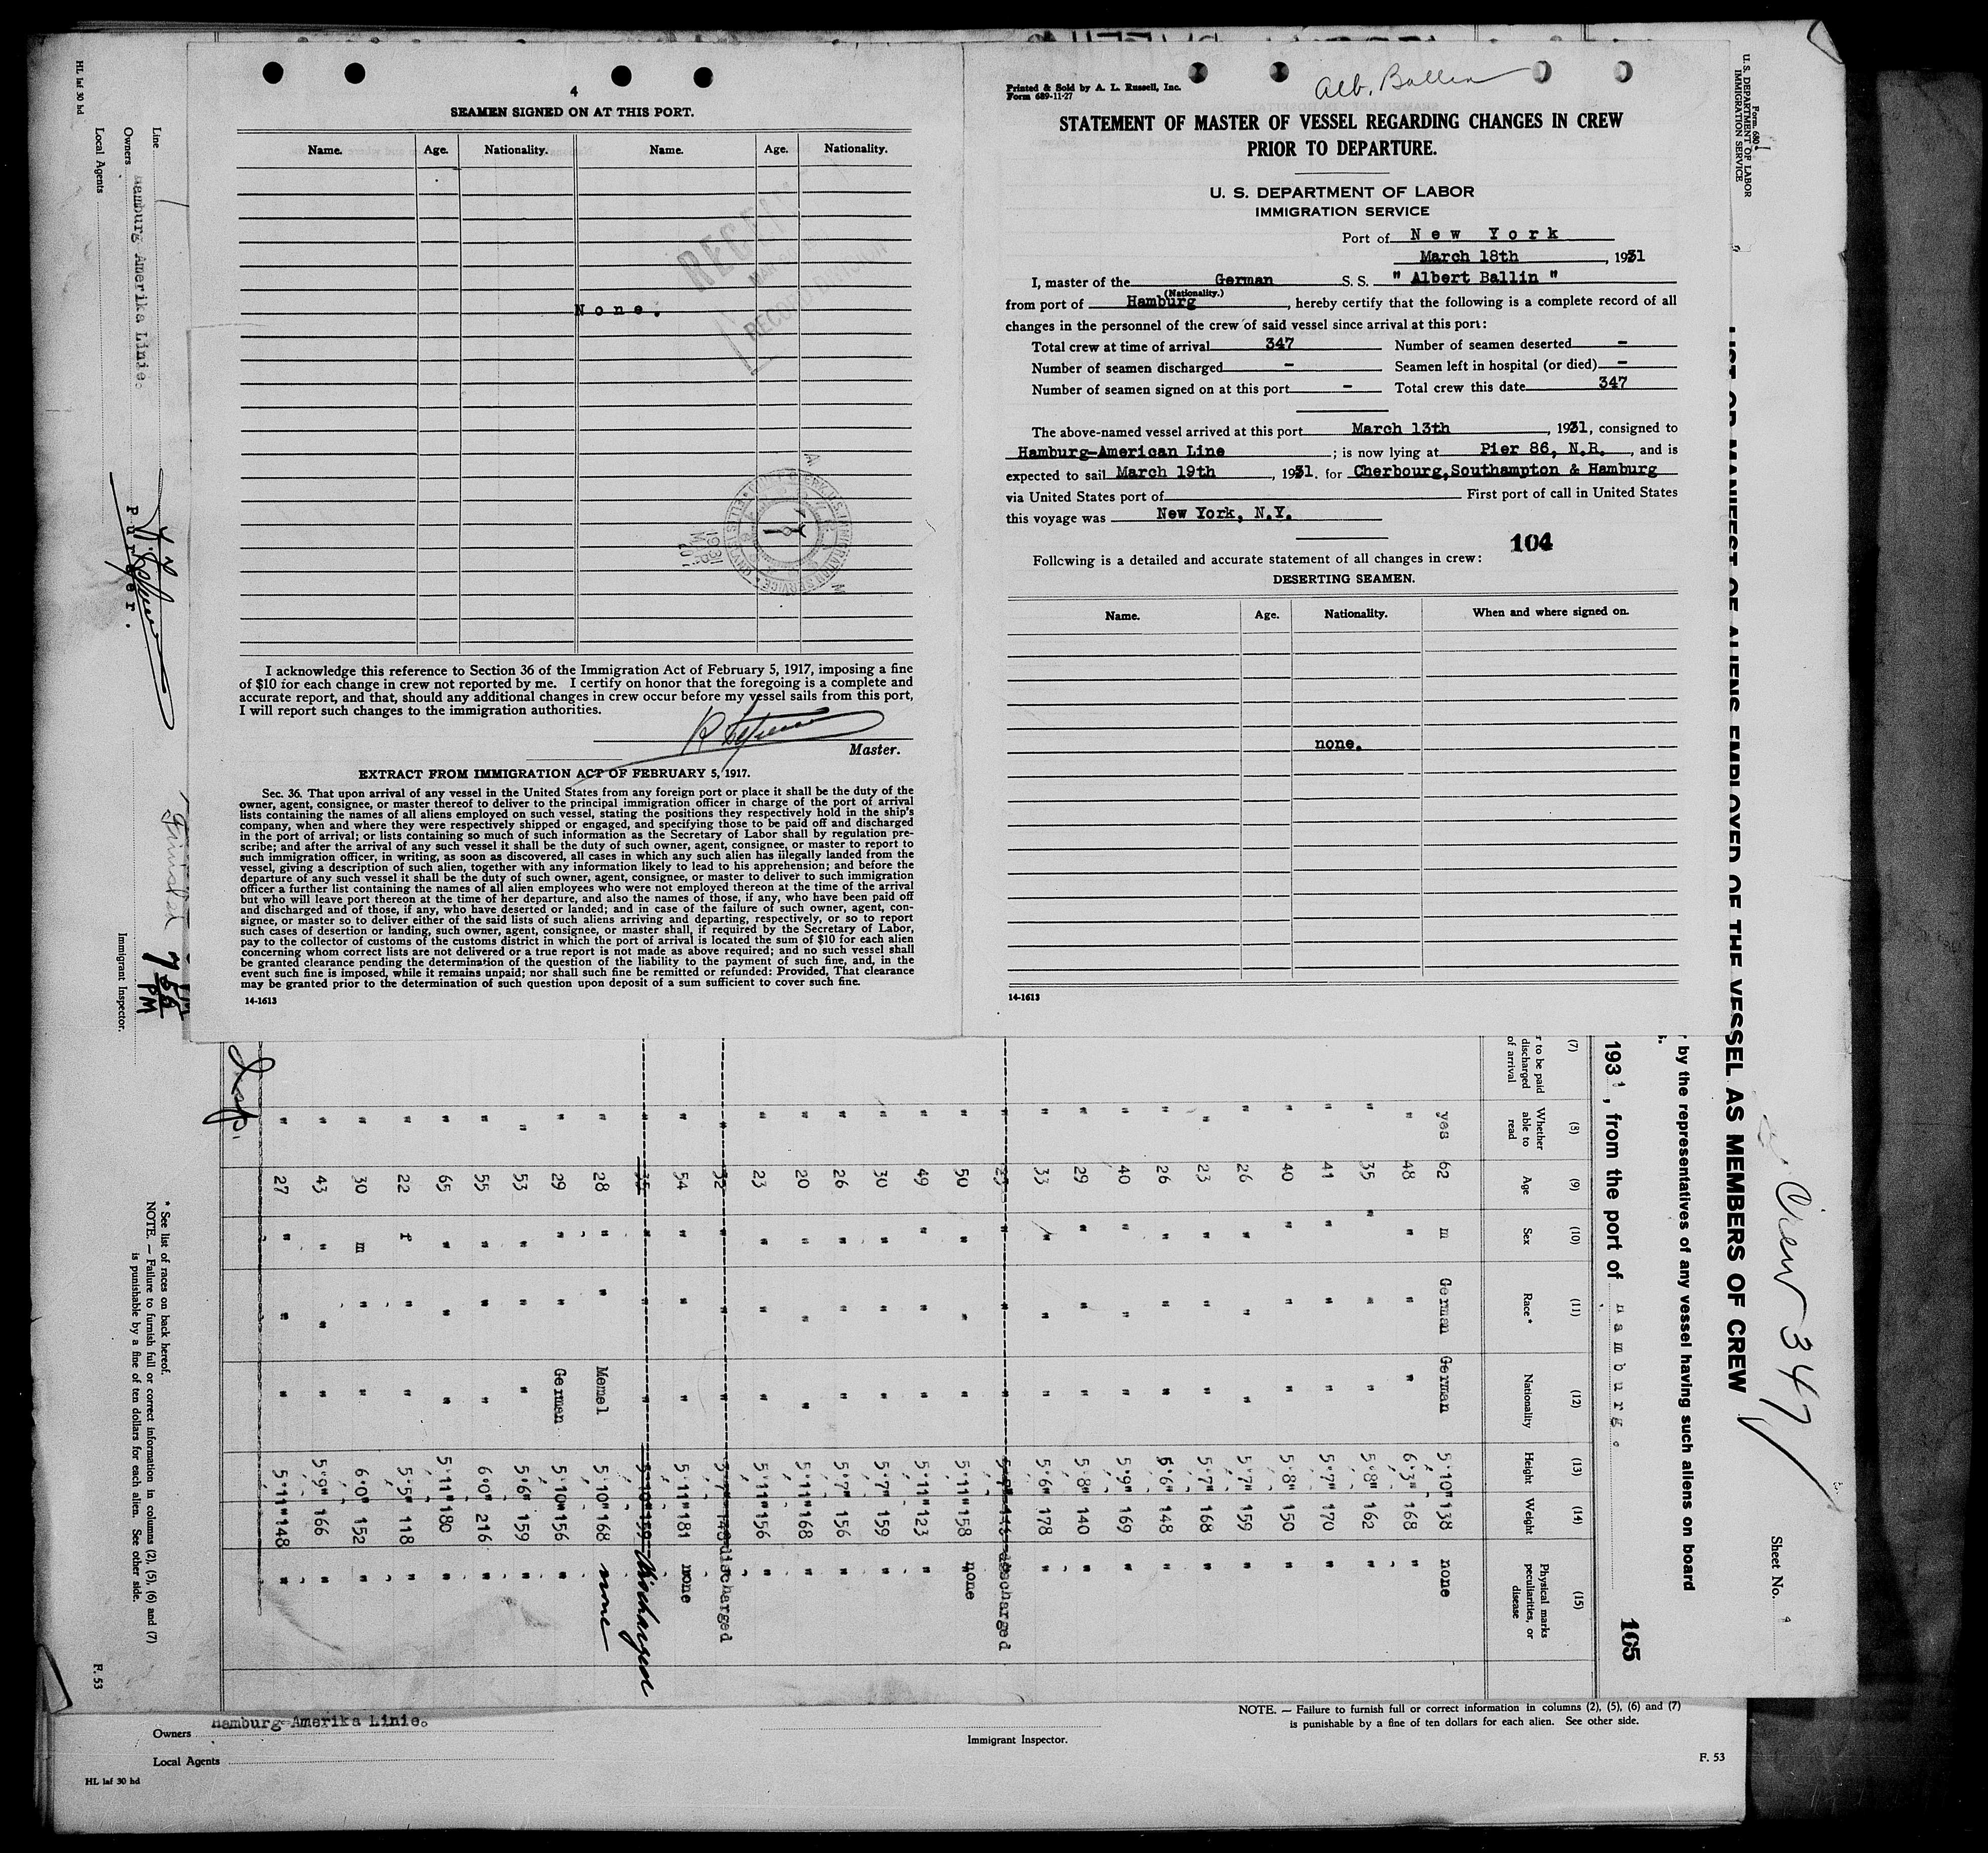 4
SEAMEN SIGNED ON AT THIS PORT.
Name. Age. Nationality. Name. Age. Nationality.
None.
I acknowledge this reference to Section 36 of the Immigration Act of February 5, 1917, imposing a fine
of $10 for each change in crew not reported by me. I certify on honor that the foregoing is a complete and
accurate report, and that, should any additional changes in crew occur before my vessel sails from this port,
I will report such changes to the immigration authorities.
Master.
EXTRACT FROM IMMIGRATION ACT OF FEBRUARY 5, 1917.
Sec. 36. That upon arrival of any vessel in the United States from any foreign port or place it shall be the duty of the
owner, agent, consignee, or master thereof to deliver to the principal immigration officer in charge of the port of arrival
lists containing the names of all aliens employed on such vessel, stating the positions they respectively hold in the ship's
company, when and where they were respectively shipped or engaged, and specifying those to be paid off and discharged
in the port of arrival; or lists containing so much of such information as the Secretary of Labor shall by regulation pre-
scribe; and after the arrival of any such vessel it shall be the duty of such owner, agent, consignee, or master to report to
such immigration officer, in writing, as soon as discovered, all cases in which any such alien has illegally landed from the
vessel, giving a description of such alien, together with any information likely to lead to his apprehension; and before the
departure of any such vessel it shall be the duty of such owner, agent, consignee, or master to deliver to such immigration
officer a further list containing the names of all alien employees who were not employed thereon at the time of the arrival
but who will leave port thereon at the time of her departure, and also the names of those, if any, who have been paid off
and discharged and of those, if any, who have deserted or landed; and in case of the failure of such owner, agent, con-
signee, or master so to deliver either of the said lists of such aliens arriving and departing, respectively, or so to report
such cases of desertion or landing, such owner, agent, consignee, or master shall, if required by the Secretary of Labor,
pay to the collector of customs of the customs district in which the port of arrival is located the sum of $10 for each alien
concerning whom correct lists are not delivered or a true report is not made as above required; and no such vessel shall
be granted clearance pending the determination of the question of the liability to the payment of such fine, and, in the
event such fine is imposed, while it remains unpaid; nor shall such fine be remitted or refunded: Provided, That clearance
may be granted prior to the determination of such question upon deposit of a sum sufficient to cover such fine.
14-1613
Printed & Sold by A. L. Russell, Inc.
Form 689-11-27
Alb. Ballin
STATEMENT OF MASTER OF VESSEL REGARDING CHANGES IN CREW
PRIOR TO DEPARTURE.
U. S. DEPARTMENT OF LABOR
IMMIGRATION SERVICE
Port of New York
March 18th, 1931
I, master of the German S. S. " Albert Ballin "
(Nationality.)
from port of Hamburg, hereby certify that the following is a complete record of all
changes in the personnel of the crew of said vessel since arrival at this port:
Total crew at time of arrival 347 Number of seamen deserted -
Number of seamen discharged - Seamen left in hospital (or died) -
Number of seamen signed on at this port - Total crew this date 347
The above-named vessel arrived at this port March 13th, 1931, consigned to
Hamburg-American Line; is now lying at Pier 86, N.R., and is
expected to sail March 19th, 1931. for Cherbourg,Southampton & Hamburg
via United States port of First port of call in United States
this voyage was New York, N.Y.
104
Following is a detailed and accurate statement of all changes in crew:
DESERTING SEAMEN.
Name. Age. Nationality. When and where signed on.
none.
14-1613
U.S. DEPARTMENT OF LABOR
IMMIGRATION SERVICE
EMPLOYED OF THE VESSEL AS MEMBERS OF CREW
by the representatives of any vessel having such aliens on board
1931, from the port of Hamburg.
105
Crew 347
Sheet No.
(7) (8) (9) (10) (11) (12) (13) (14) (15)
r to be paid discharged of arrival Whether able to read Age Sex Race* Nationality Height Weight Physical marks peculiarities, or disease
yes 62 m German German 5'10" 138 none
" 48 " " " 6'3" 168 "
" 35 " " " 5'8" 162 "
" 41 " " " 5'7" 170 "
" 40 " " " 5'8" 150 "
" 26 " " " 5'7" 159 "
" 23 " " 5'7" 168 "
" 26 " " " 5'6" 148 "
" 40 " " " 5'9" 169 "
" 29 " " " 5'8" 140 "
" 33 " " " 5'6" 178 "
" " " " discharged
" 50 " " " 5'11" 158 none
" 49 " " " 5'11" 123 "
" 30 " " " 5'7" 159 "
" 26 " " " 5'7" 156 "
" 20 " " " 5'11" 168 "
" 23 " " " 5'11" 156 "
" 32 " " " 5'7" 148 discharged
" 54 " " " 5'11" 181 none
" 35 " " " 5'10" 159 discharged
" 28 " " Memel 5'10" 168 none
" 29 " " German 5'10" 156 "
" 53 " " " 5'6" 159 "
" 55 " " " 6'0" 216 "
" 65 " " " 5'11" 180 "
" 22 f " " 5'5" 118 "
" 30 m " " 6'0" 152 "
" 43 " " " 5'9" 166 "
" 27 " " " 5'11" 148 "
Insp.
Line
Owners Hamburg Amerika Linie.
Local Agents
HL laf 30 hd
Purser.
Finished 7 55 PM
Immigrant Inspector.
* See list of races on back hereof.
NOTE. — Failure to furnish full or correct information in columns (2), (5), (6) and (7)
is punishable by a fine of ten dollars for each alien. See other side.
F. 53
Owners Hamburg-Amerika Linie.
Local Agents
HL laf 30 hd
Immigrant Inspector.
NOTE. — Failure to furnish full or correct information in columns (2), (5), (6) and (7)
is punishable by a fine of ten dollars for each alien. See other side.
F. 53